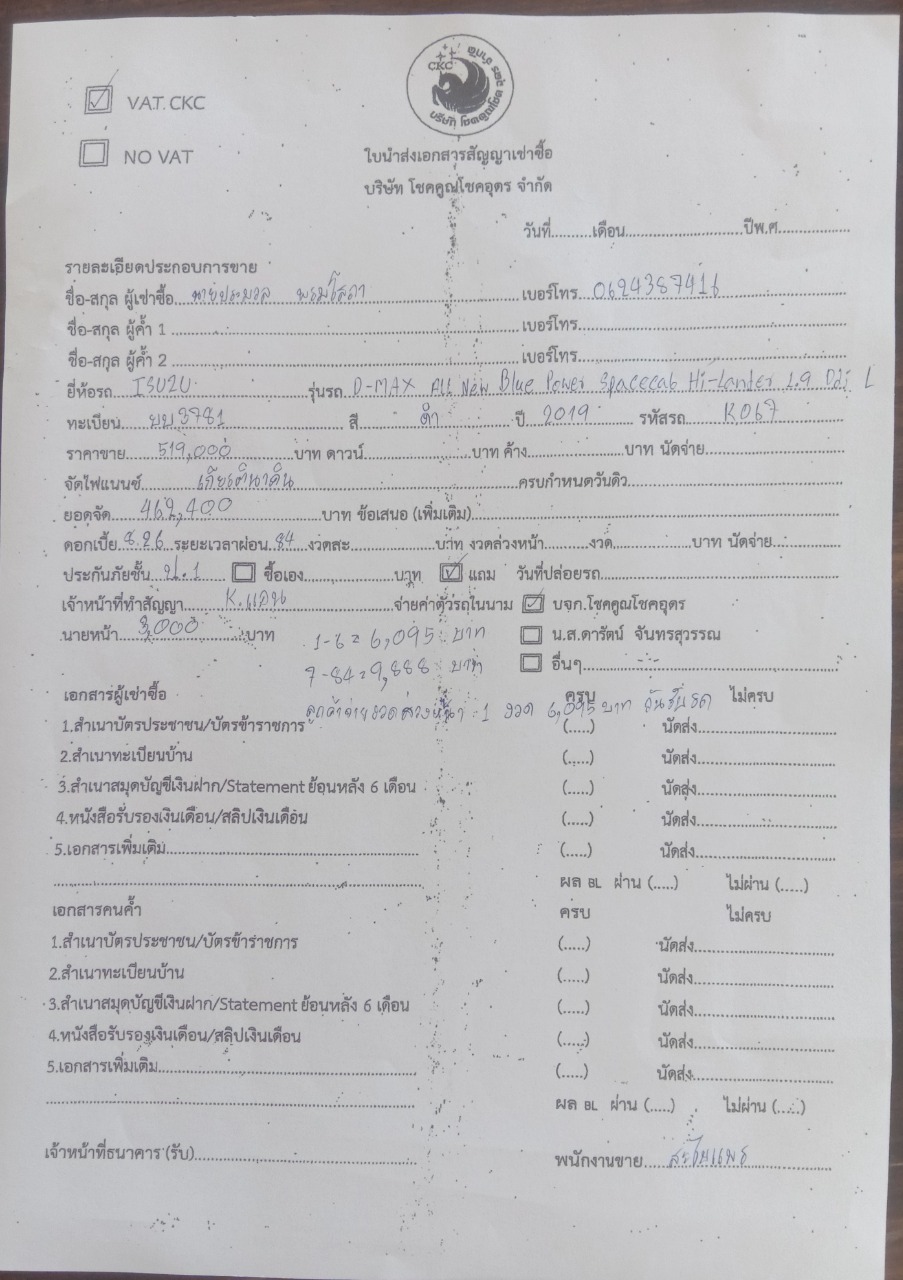 CKC
บริษัท โชคคูณโชค อุดร จำกัด
☑ V.A.T. CKC
☐ NO VAT
ใบนำส่งเอกสารสัญญาเช่าซื้อ
บริษัท โชคคูณโชคอุดร จำกัด
วันที่..........เดือน.............................ปีพ.ศ..................
รายละเอียดประกอบการขาย
ชื่อ-สกุล ผู้เช่าซื้อ...นายประมวล พรมโสภา...เบอร์โทร...0624387416
ชื่อ-สกุล ผู้ค้ำ 1 ..........เบอร์โทร..........
ชื่อ-สกุล ผู้ค้ำ 2 ..........เบอร์โทร..........
ยี่ห้อรถ...ISUZU...รุ่นรถ...D-MAX ALL New Blue Power Spacecab Hi-Lander 1.9 Ddi L
ทะเบียน...ยบ3781...สี...ดำ...ปี...2019...รหัสรถ...K067
ราคาขาย...519,000...บาท ดาวน์..........บาท ค้าง..........บาท นัดจ่าย..........
จัดไฟแนนซ์...เกียรตินาคิน...ครบกำหนดวันดิว..........
ยอดจัด...462,400...บาท ข้อเสนอ (เพิ่มเติม)..........
ดอกเบี้ย...8.26...ระยะเวลาผ่อน...84...งวดละ..........บาท งวดล่วงหน้า..........งวด..........บาท นัดจ่าย..........
ประกันภัยชั้น...ป.1...☐ ซื้อเอง..........บาท ☑ แถม วันที่ปล่อยรถ..........
เจ้าหน้าที่ทำสัญญา...K.แดน...จ่ายค่าตัวรถในนาม ☑ บจก.โชคคูณโชคอุดร
นายหน้า...3,000...บาท 1-6 = 6,095 บาท ☐ น.ส.ดารัตน์ จันทรสุวรรณ
7-84 = 9,888 บาท ☐ อื่นๆ..........
เอกสารผู้เช่าซื้อ ครบ ไม่ครบ
ลูกค้าจ่ายงวดล่วงหน้า 1 งวด 6,095 บาท วันรับรถ
1.สำเนาบัตรประชาชน/บัตรข้าราชการ (.....) นัดส่ง..........
2.สำเนาทะเบียนบ้าน (.....) นัดส่ง..........
3.สำเนาสมุดบัญชีเงินฝาก/Statement ย้อนหลัง 6 เดือน (.....) นัดส่ง..........
4.หนังสือรับรองเงินเดือน/สลิปเงินเดือน (.....) นัดส่ง..........
5.เอกสารเพิ่มเติม.......... (.....) นัดส่ง..........
.......... ผล BL ผ่าน (.....) ไม่ผ่าน (.....)
เอกสารคนค้ำ ครบ ไม่ครบ
1.สำเนาบัตรประชาชน/บัตรข้าราชการ (.....) นัดส่ง..........
2.สำเนาทะเบียนบ้าน (.....) นัดส่ง..........
3.สำเนาสมุดบัญชีเงินฝาก/Statement ย้อนหลัง 6 เดือน (.....) นัดส่ง..........
4.หนังสือรับรองเงินเดือน/สลิปเงินเดือน (.....) นัดส่ง..........
5.เอกสารเพิ่มเติม.......... (.....) นัดส่ง..........
.......... ผล BL ผ่าน (.....) ไม่ผ่าน (.....)
เจ้าหน้าที่ธนาคาร (รับ).......... พนักงานขาย..........